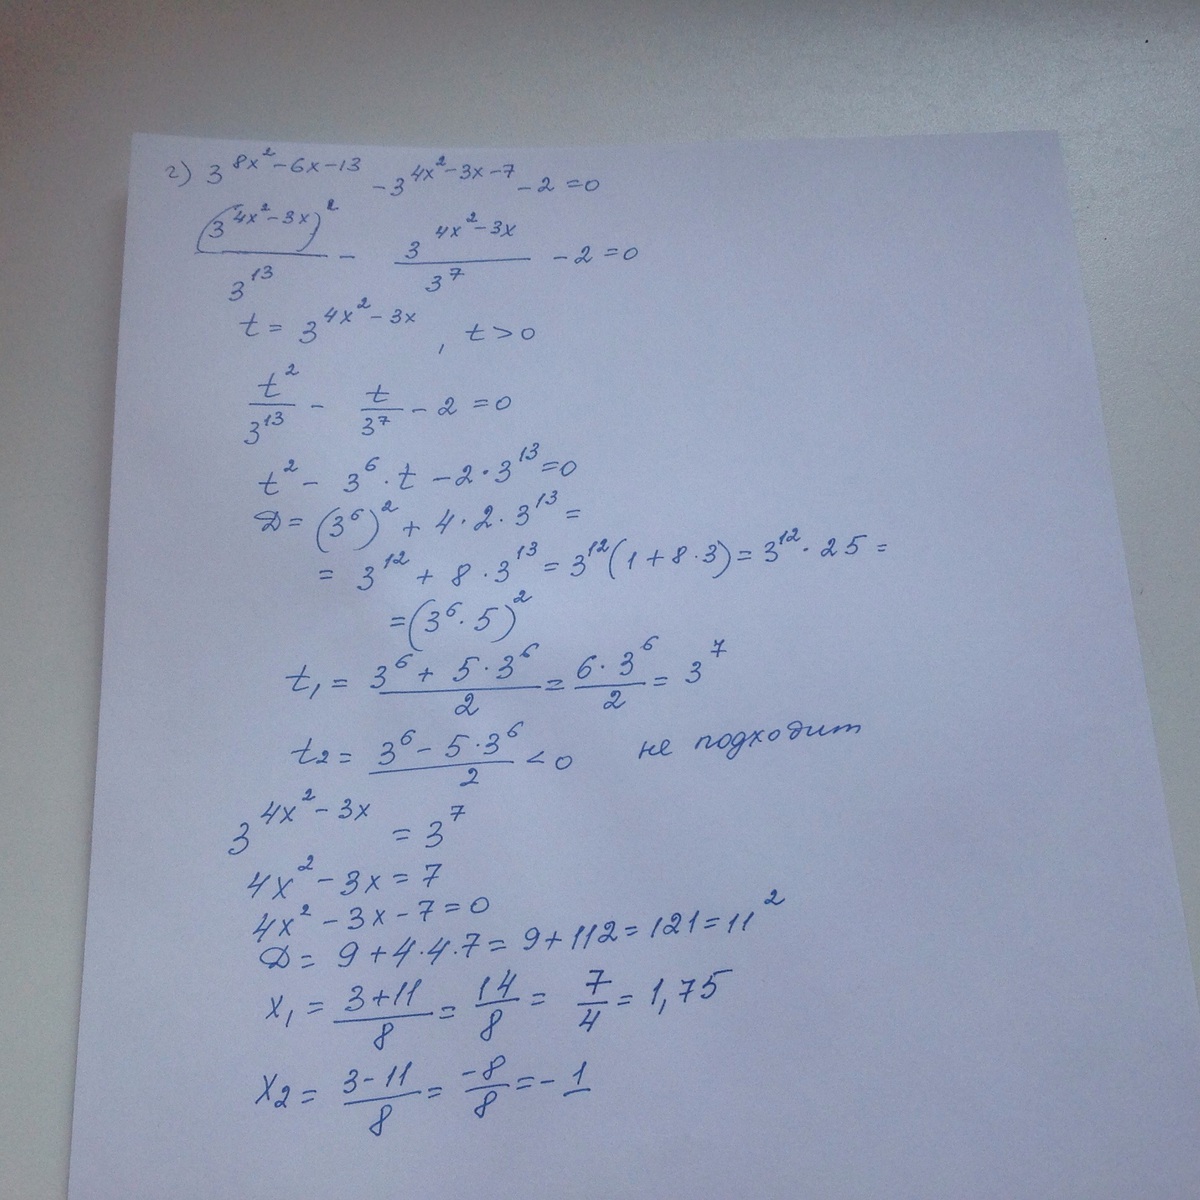 г) 3^(8x²-6x-13) - 3^(4x²-3x-7) - 2 = 0
(3^(4x²-3x))²/3^13 - 3^(4x²-3x)/3^7 - 2 = 0
t = 3^(4x²-3x), t > 0
t²/3^13 - t/3^7 - 2 = 0
t² - 3^6 · t - 2 · 3^13 = 0
D = (3^6)² + 4 · 2 · 3^13 =
= 3^12 + 8 · 3^13 = 3^12(1 + 8 · 3) = 3^12 · 25 =
= (3^6 · 5)²
t₁ = (3^6 + 5 · 3^6)/2 = (6 · 3^6)/2 = 3^7
t₂ = (3^6 - 5 · 3^6)/2 < 0 не подходит
3^(4x²-3x) = 3^7
4x² - 3x = 7
4x² - 3x - 7 = 0
D = 9 + 4 · 4 · 7 = 9 + 112 = 121 = 11²
x₁ = (3+11)/8 = 14/8 = 7/4 = 1,75
x₂ = (3-11)/8 = -8/8 = -1